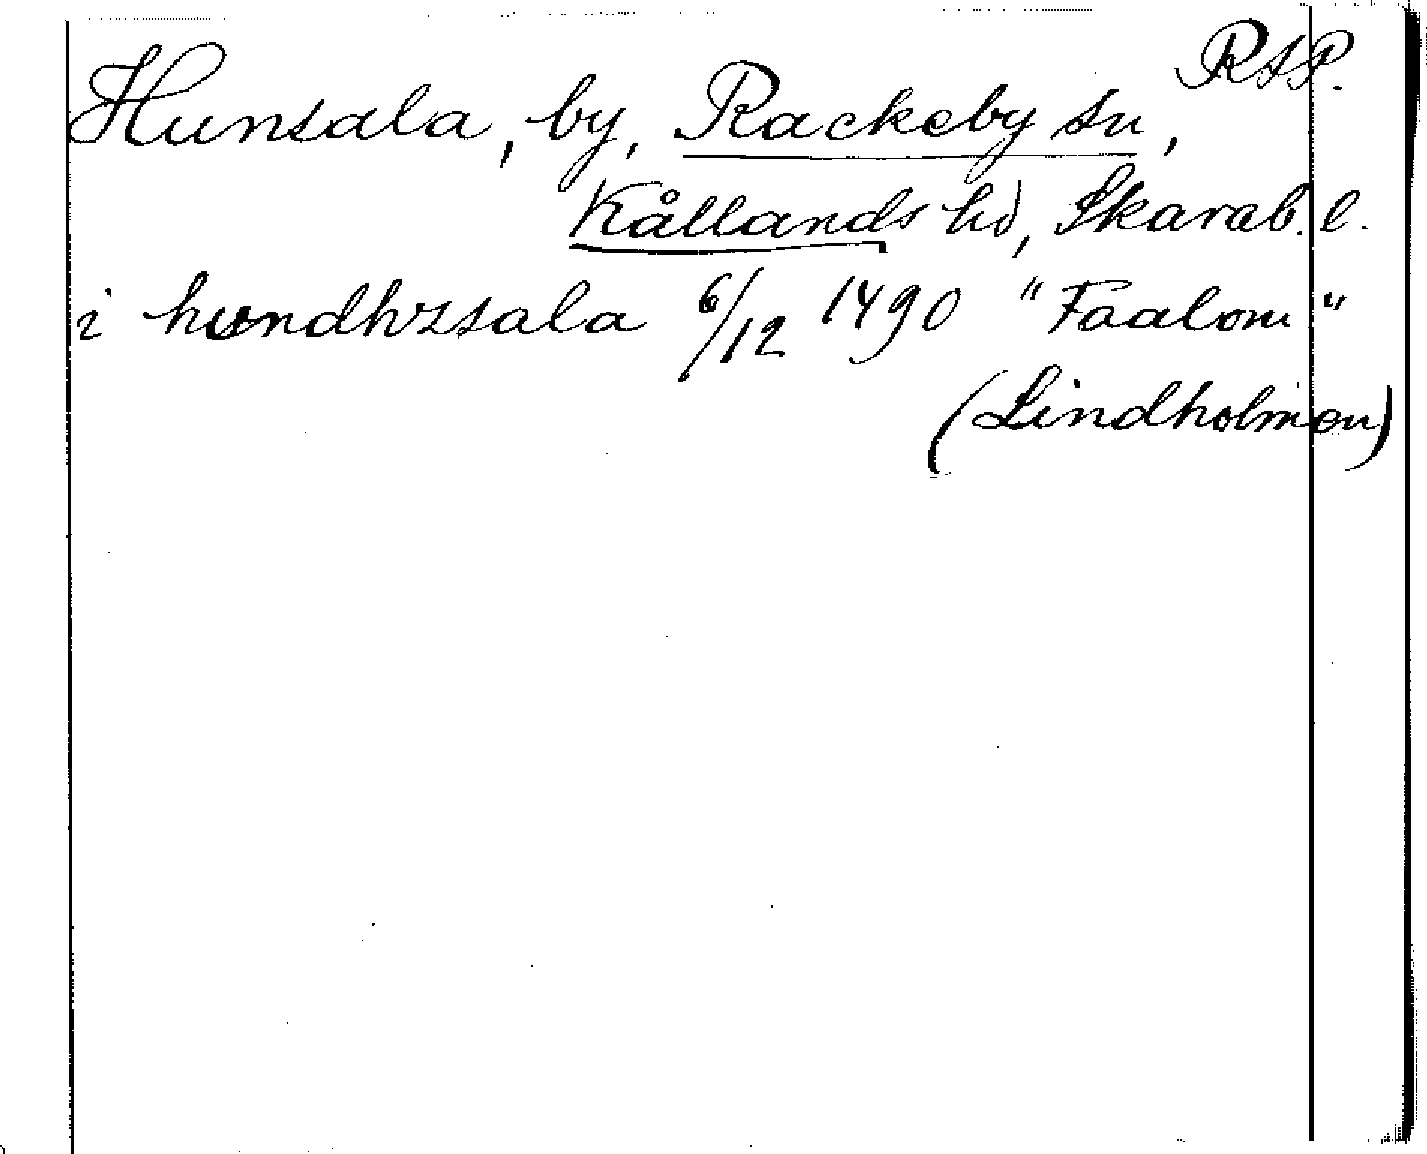 RAP.
Hunsala, by, Rackeby sn,
Kållands hd, Skarab. l.
i hundhzsala 6/12 1490 "Faalom"
(Lindholmen)